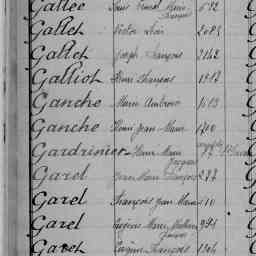 Gallée Louis Ernest Marie François 592
Gallet Victor 2085
Gallet Joseph François 2142
Galliot Henri François
Ganche Marie Ambroise 1013
Ganche Henri Jean Marie 1700
Gardrinier Pierre Marie
Garel Jean Marie François 277
Garel François Jean Marie 110
Garel Eugène Marie Mathurin François 994
Garel Eugène François 1304